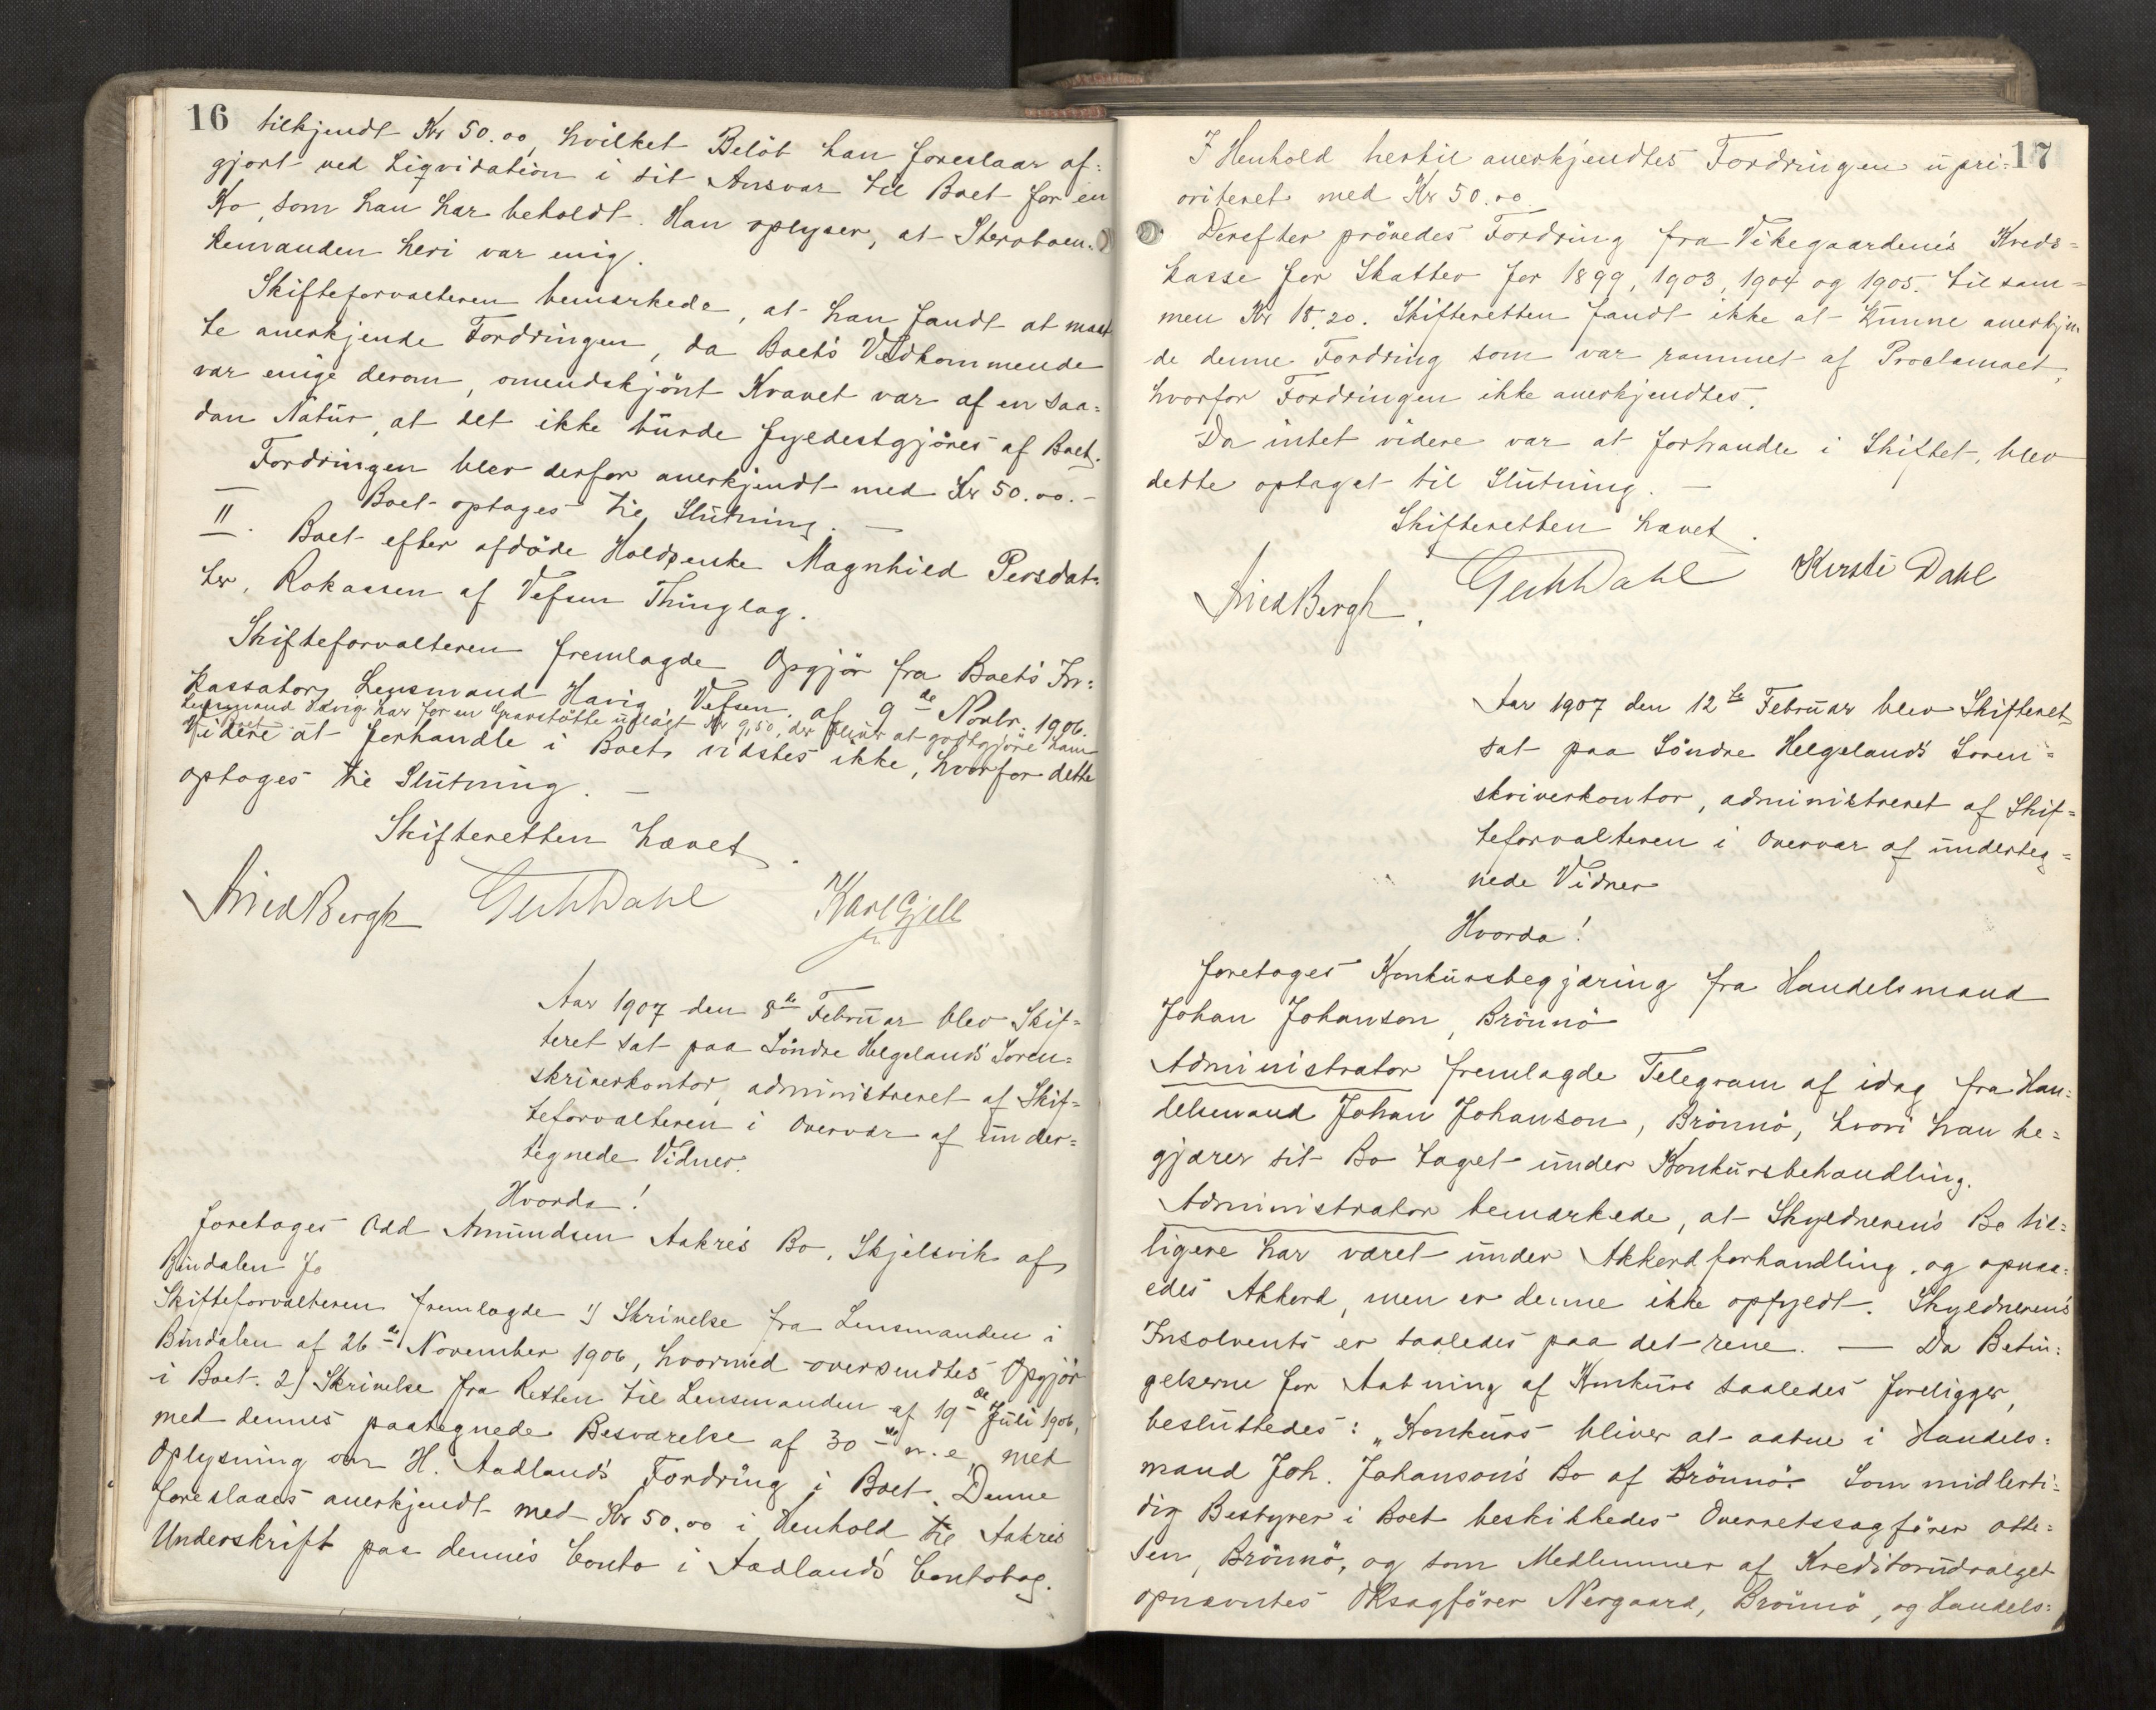 16
tilkjendt Kr 50.00, hvilket Beløb han foreslaar af=
gjort ved Liqvidation i sit Ansvar til Boet for en
Ko, som han har beholdt. Han oplyser, at Stervboen=
kemanden heri var enig.
Skifteforvalteren bemærkede, at han fandt at maat
te anerkjende Fordringen, da Boets Vedkommende
var enige derom, omendskjønt Kravet var af en saa=
dan Natur, at det ikke burde fyldestgjøres af Boet.
Fordringen blev derfor anerkjendt med Kr 50.00.-
Boet optages til Slutning. —
II. Boet efter afdøde Holdsenke Magnhild Persdat=
ter, Rokassen af Vefsen Thinglag.
Skifteforvalteren fremlagde Opgjør fra Boets In=
kassator, Lensmand Havig, Vefsen, af 9de Novbr. 1906.
Lensmand Havig har for en Gravstøtte udlagt Kr 9,50, der bliver at godtgjøre ham
Videre at forhandle i Boet vidstes ikke, hvorfor dette
optages til Slutning. —
Skifteretten hævet.
Arild Bergh GuhbDahl Karl Gjell
Aar 1907 den 8de Februar blev Skif=
teret sat paa Søndre Helgelands Soren=
skriverkontor, administreret af Skif=
teforvalteren i Overvær af under=
tegnede Vidner.
Hvorda!
foretages Odd Amundsen Aakres Bo, Skjelsvik af
Bindalen
Skifteforvalteren fremlagde 1) Skrivelse fra Lensmanden i
Bindalen af 26de November 1906, hvormed oversendtes Opgjør
i Boet. 2) Skrivelse fra Retten til Lensmanden af 19de Juli 1906,
med dennes paategnede Besvarelse af 30de n.e, med
Oplysning om H. Aadlands Fordring i Boet. Denne
foreslaaes anerkjendt med Kr 50.00 i Henhold til Aakres
Underskrift paa dennes Conto i Aadlands Contobog.
17
I Henhold hertil anerkjendtes Fordringen upri=
oriteret med Kr 50.00.
Derefter prøvedes Fordring fra Vikegaardenes Kreds=
kasse for Skatter for 1899, 1903, 1904 og 1905. til sam=
men Kr 18.20. Skifteretten fandt ikke at kunne anerkjen
de denne Fordring som var rammet af Proclamaet,
hvorfor Fordringen ikke anerkjendtes.
Da intet videre var at forhandle i Skiftet, blev
dette optaget til Slutning. —
Skifteretten hævet.
Arild Bergh. GuhbDahl Kirsti Dahl
Aar 1907 den 12te Februar blev Skifteret
sat paa Søndre Helgelands Soren=
skriverkontor, administreret af Skif=
teforvalteren i Overvær af underteg=
nede Vidner
Hvorda!
foretages Konkursbegjæring fra Handelsmand
Johan Johanson, Brønnø
Administrator fremlagde Telegram af idag fra Han=
delsmand Johan Johanson, Brønnø, hvori han be=
gjærer sit Bo taget under Konkursbehandling.
Administrator bemærkede, at Skyldnerens Bo tid=
ligere har været under Akkordforhandling, og opnaa=
edes Akkord, men er denne ikke opfyldt. Skyldnerens
Insolvents er saaledes paa det rene. — Da Betin=
gelserne for Aabning af Konkurs saaledes foreligger,
besluttedes: „Konkurs bliver at aabne i Handels=
mand Joh. Johansons Bo af Brønnø. Som midlerti=
dig Bestyrer i Boet beskikkedes Overretssagfører Otte=
sen, Brønnø, og som Medlemmer af Kreditorudvalget
opnævntes ORsagfører Nergaard, Brønnø, og Handels=